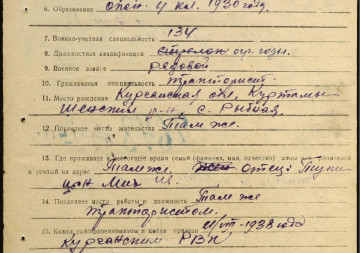 6. Образование 4 кл. 1930 году.
7. Военно-учетная специальность 134
8. Должностная квалификация стрелок
9. Военное звание рядовой
10. Гражданская специальность тракторист.
11. Место рождения Курганская обл, Куртамы-
шенский р-н, с. Рыбная
12. Последнее место жительства Там же.
13. Где проживает в настоящее время семья (фамилия, имя, отчество) жены
точный адрес Там же, отец:
14. Последнее место работы и должность Там же
трактористом.
15. Каким райвоенкоматом и когда призван VIII-1938 года
Курганским РВК